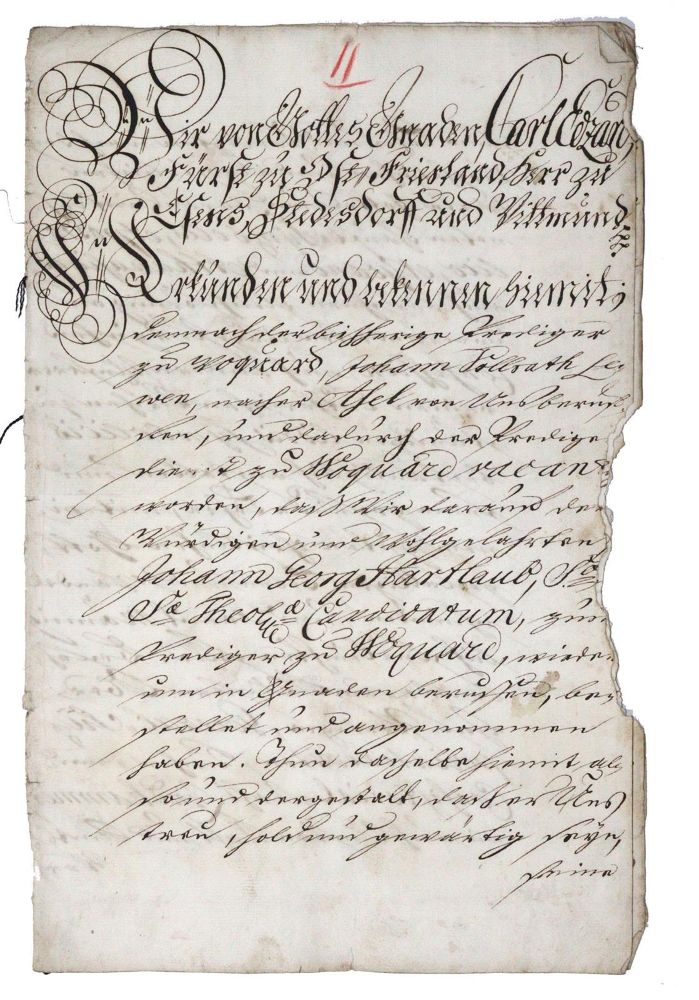 11
Wir von Gottes Gnaden, Carl Edzard,
Fürst zu Ost-Friesland, Herr zu
Esens, Stedesdorff und Wittmund
Erkunden und bekennen hiemit;
demnach der bißherige Prediger
zu Woquard, Johann Vollrath
wen, nacher Asel von Uns beruf-
fen, und dadurch der Predige
dienst zu Woquard vacant
worden, daß Wir darauf de
Würdigen und Wohlgelahrten
Johann Georg Hartlaub,
Sæ Theolgæ Candidatum, zum
Prediger zu Woquard, wieder
um in Gnaden beruffen, be-
stellet und angenommen
haben. Thun dasselbe hiemit als
so und dergestalt, daß er Uns
treu, hold und gewärtig seye,
seine